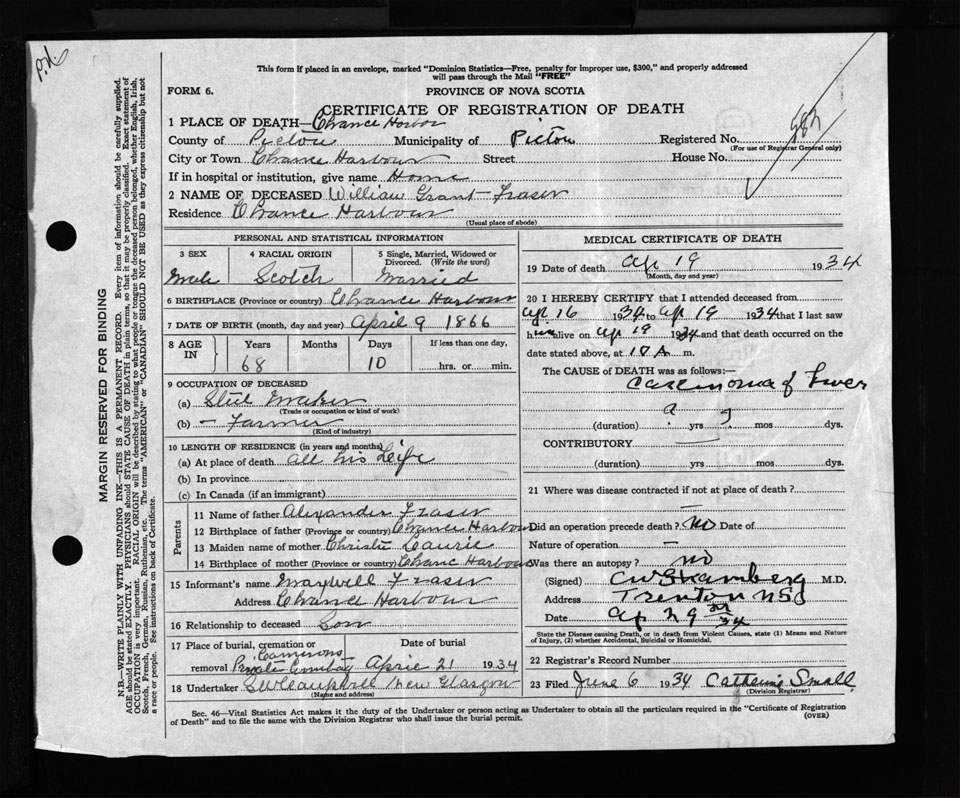 This form if placed in an envelope, marked "Dominion Statistics—Free, penalty for improper use, $300," and properly addressed
will pass through the Mail "FREE"
FORM 6. PROVINCE OF NOVA SCOTIA
CERTIFICATE OF REGISTRATION OF DEATH
1 PLACE OF DEATH—Chance Harbor
County of Pictou Municipality of Pictou Registered No. 583
(For use of Registrar General only)
City or Town Chance Harbour Street House No.
If in hospital or institution, give name Home
2 NAME OF DECEASED William Grant Fraser
Residence Chance Harbour
(Usual place of abode)
MARGIN RESERVED FOR BINDING
N.B.—WRITE PLAINLY WITH UNFADING INK—THIS IS A PERMANENT RECORD. Every item of information should be carefully supplied.
AGE should be stated EXACTLY. PHYSICIANS should STATE CAUSE OF DEATH in plain terms, so that it may be properly classified. Exact statement of
OCCUPATION is very important. RACIAL ORIGIN will be described by stating to what people or tongue the deceased person belonged, whether English, Irish,
Scotch, French, German, Russian, Ruthenian, etc. The terms "AMERICAN" or "CANADIAN" SHOULD NOT BE USED as they express citizenship but not
a race or people. See instructions on back of Certificate.
PERSONAL AND STATISTICAL INFORMATION
3 SEX 4 RACIAL ORIGIN 5 Single, Married, Widowed or
Divorced. (Write the word)
Male Scotch Married
6 BIRTHPLACE (Province or country) Chance Harbour
7 DATE OF BIRTH (month, day and year) April 9 1866
8 AGE IN Years Months Days If less than one day,
68 10 hrs. or min.
9 OCCUPATION OF DECEASED
(a) Steel Maker
(Trade or occupation or kind of work)
(b) - Farmer
(Kind of industry)
10 LENGTH OF RESIDENCE (in years and months)
(a) At place of death all his Life
(b) In province
(c) In Canada (if an immigrant)
Parents
11 Name of father Alexander Fraser
12 Birthplace of father (Province or country) Chance Harbour
13 Maiden name of mother Christie Laurie
14 Birthplace of mother (Province or country) Chanc Harbour
15 Informant's name Maxwell Fraser
Address Chance Harbour
16 Relationship to deceased Son
17 Place of burial, cremation or Date of burial
Camerons
removal Private April 21 1934
18 Undertaker New Glasgow
(Name and address)
MEDICAL CERTIFICATE OF DEATH
19 Date of death Ap 19 1934
(Month, day and year)
20 I HEREBY CERTIFY that I attended deceased from
Apl 16 1934 to Ap 19 1934 that I last saw
him alive on Ap 19 1934 and that death occurred on
date stated above, at 10 A m.
The CAUSE OF DEATH was as follows:—
Carcinoma of Liver
(duration) yrs mos dys.
CONTRIBUTORY
(duration) yrs. mos. dys.
21 Where was disease contracted if not at place of death?
Did an operation precede death? No Date of
Nature of operation —
Was there an autopsy? no
(Signed) M.D.
Address Trenton N S
Date 34
State the Disease causing Death, or in death from Violent Causes, state (1) Means and Nature
of Injury, (2) whether Accidental, Suicidal or Homicidal.
22 Registrar's Record Number
23 Filed June 6 1934 Catherine Small
(Division Registrar)
Sec. 46—Vital Statistics Act makes it the duty of the Undertaker or person acting as Undertaker to obtain all the particulars required in the "Certificate of Registration
of Death" and to file the same with the Division Registrar who shall issue the burial permit. (OVER)